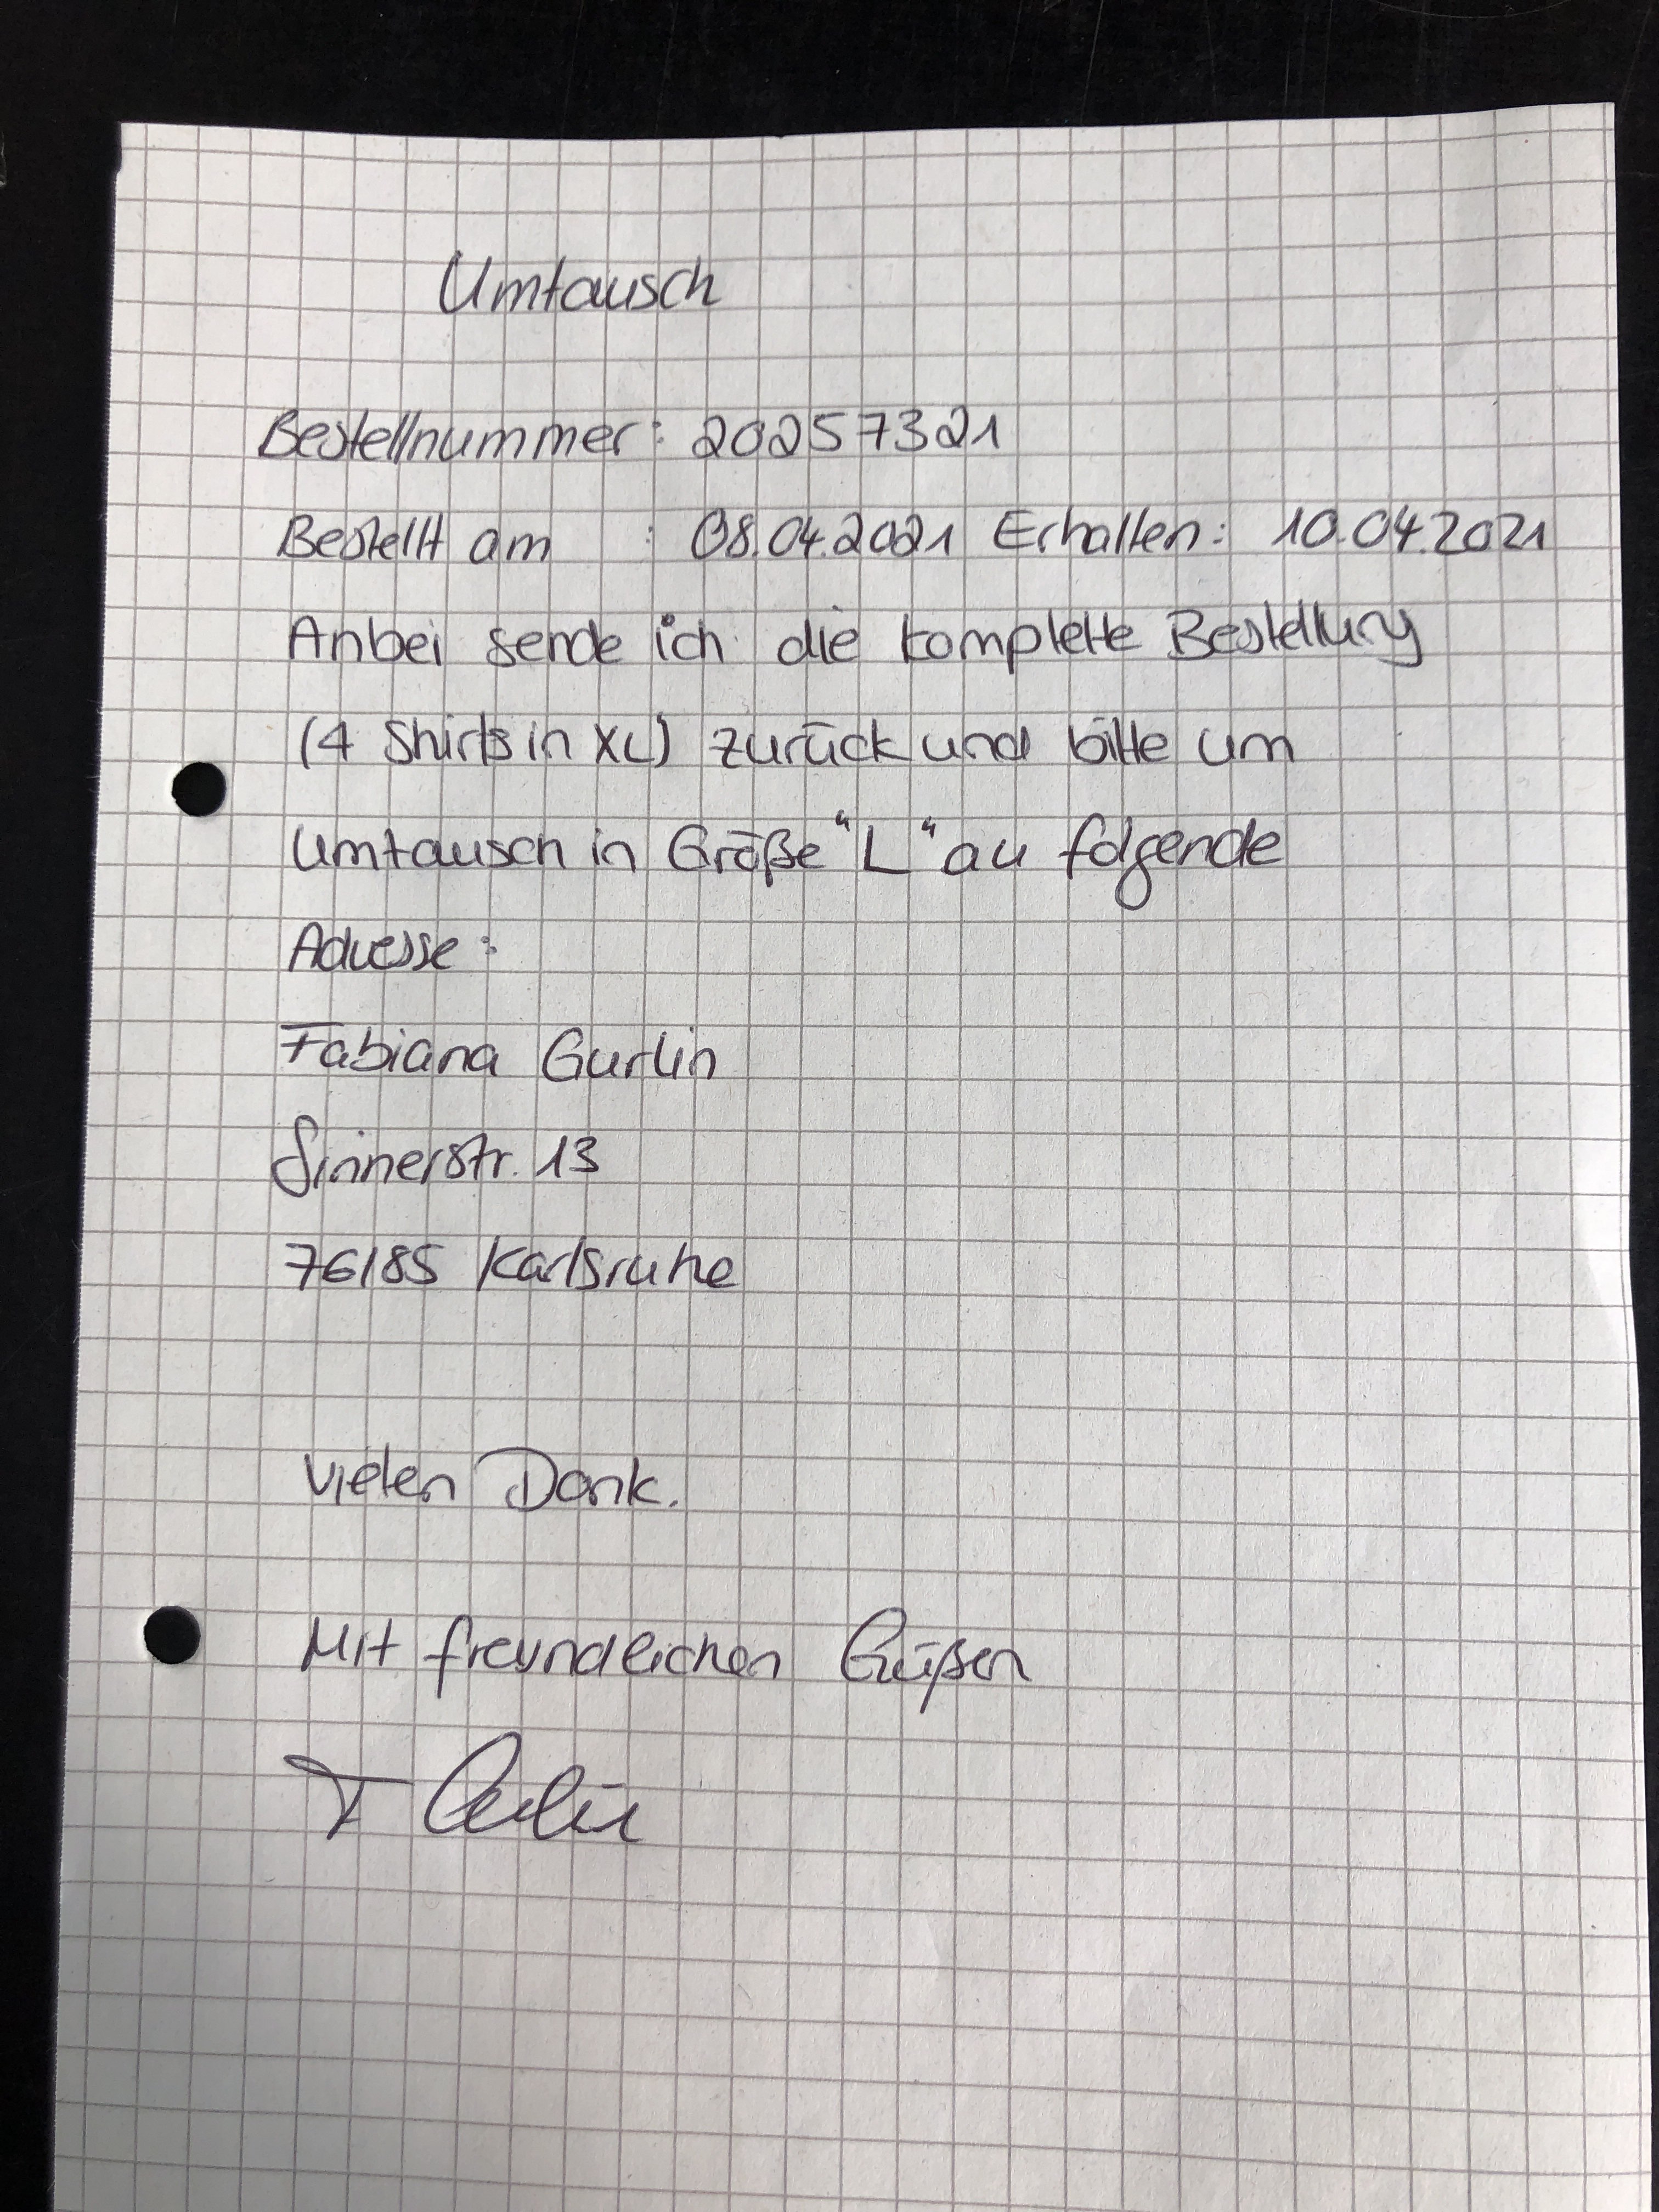 Umtausch
Bestellnummer: 20257321
Bestellt am : 08.04.2021 Erhalten: 10.04.2021
Anbei sende ich die komplette Bestellung
(4 Shirts in XL) zurück und bitte um
Umtausch in Größe "L" an folgende
Adresse:
Fabiana Gurlin
Sinnerstr. 13
76185 Karlsruhe
Vielen Dank.
Mit freundlichen Grüßen
F Gurlin